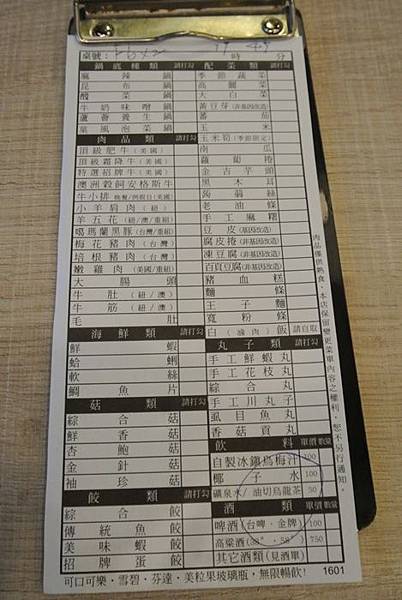 桌號：
時 分
鍋底種類 請打勾
麻辣鍋
昆布鍋
酸菜鍋
牛奶味噌鍋
蘆薈養生鍋
葉風泡菜鍋
肉品類 請打勾
頂級肥牛(美國)
頂級霜降牛(美國)
特選招牌牛(美國)
澳洲穀飼安格斯牛
牛小排
小羊肩肉(紐)
羊五花(紐/澳/重組)
噶瑪蘭黑豚(台灣/重組)
梅花豬肉(台灣)
培根豬肉(台灣)
嫩雞肉(台灣/重組)
大腸頭
牛肚(紐/澳)
牛筋(紐/澳)
毛肚
海鮮類 請打勾
鮮蝦
蛤蜊
軟絲
鯛魚片
菇類 請打勾
綜合菇
鮮香菇
杏鮑菇
金針菇
袖珍菇
餃類 請打勾
綜合餃
傳統魚餃
美味蝦餃
招牌蛋餃
配菜類 請打勾
季節蔬菜
高麗菜
大白菜
黃豆芽(非基因改造)
番茄
玉米
玉米筍(季節限定)
南瓜
蘿蔔捲
金吉芋頭
黑木耳
蒟蒻條
老油條
手工麻糬
豆皮(非基因改造)
腐皮捲(非基因改造)
凍豆腐(非基因改造)
百頁豆腐(非基因改造)
豬血糕
麵條
王子麵
寬粉條
白(滷肉)飯 請自取
丸子類 請打勾
手工鮮蝦丸
手工花枝丸
綜合丸
手工川丸子
虱目魚丸
香菇貢丸
飲料 單價 數量
自製冰鎮烏梅汁 100
椰子水 100
礦泉水/油切烏龍茶 50
酒類 單價 數量
啤酒(台啤·金牌) 100
高粱酒(38°·58°) 750
其它酒類(見酒單)
可口可樂·雪碧·芬達·美粒果玻璃瓶，無限暢飲! 1601
肉品僅供熟食，本店保留變更菜單內容之權利，恕不另行通知。